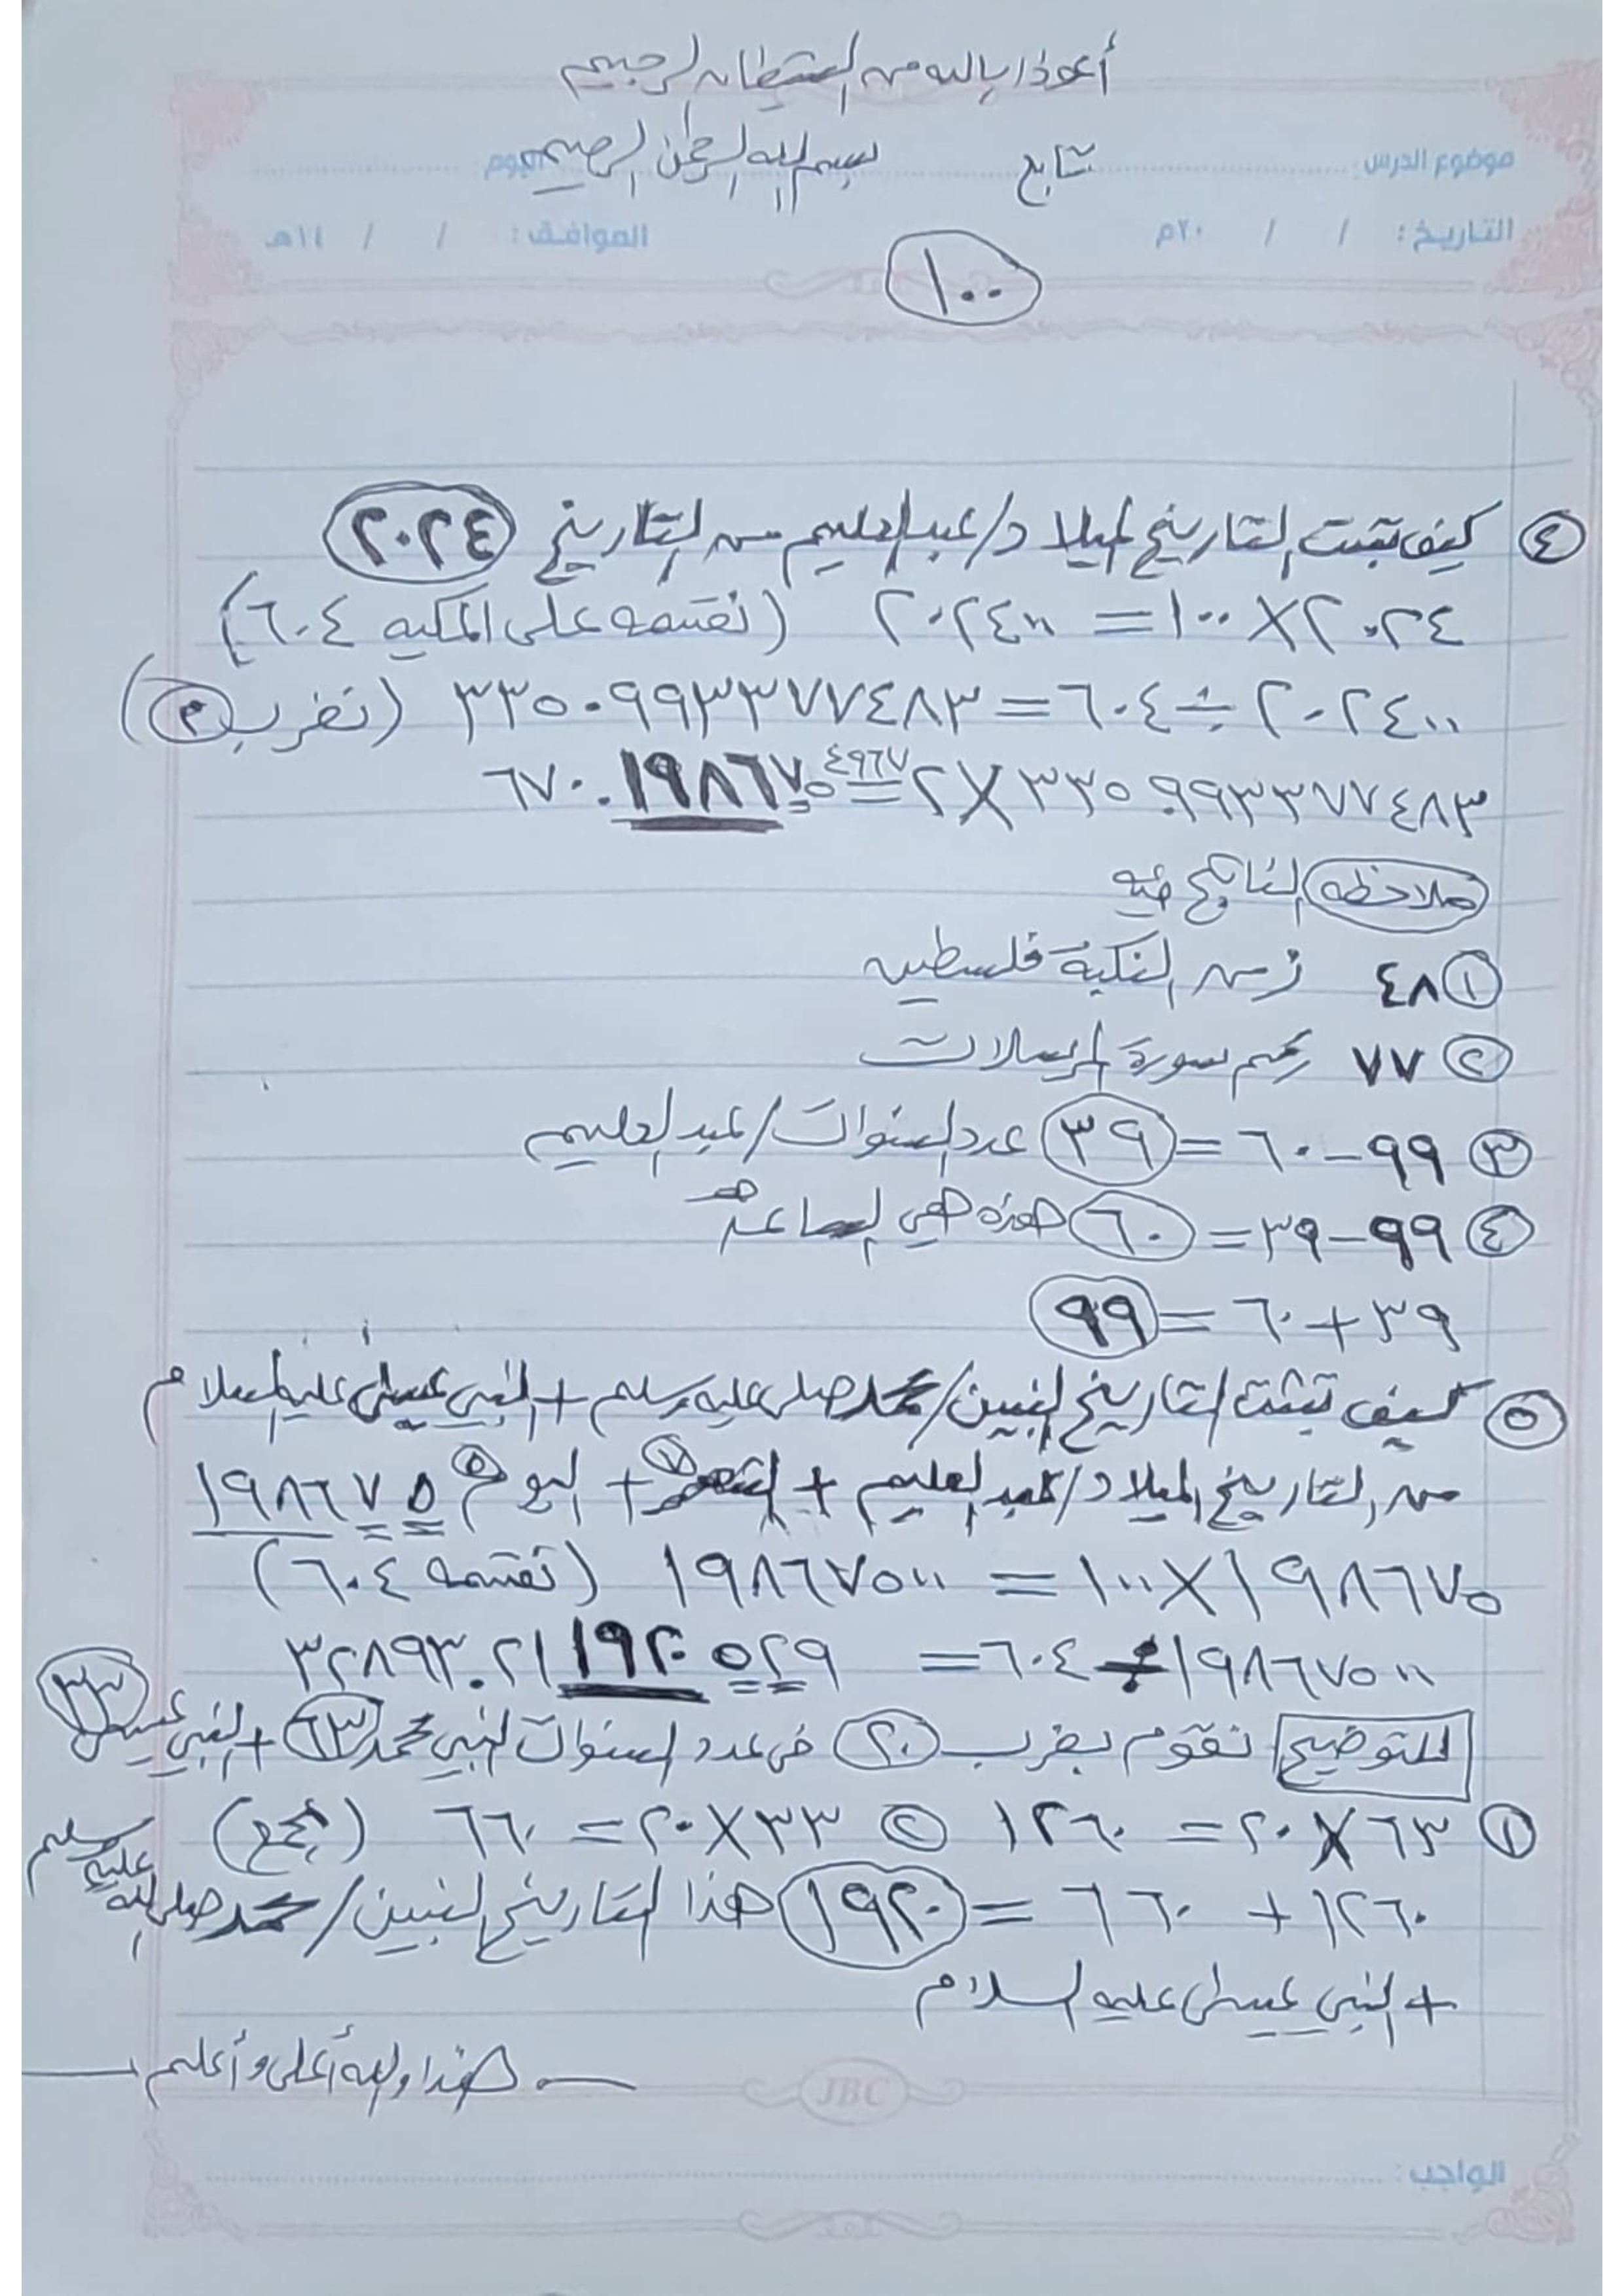 أعوذ بالله من الشيطان الرجيم
موضوع الدرس: تابع بسم الله الرحمن الرحيم اليوم:
التاريخ: / / ٢٠م الموافق: / / ١٤هـ
١٠٠
٤ كيف تثبت التاريخ لميلاد/عبدالعليم من التاريخ ٢٠٢٤
٢٠٢٤ × ١٠٠ = ٢٠٢٤٠٠ (نقسمه على المكيه ٦٠٤)
٢٠٢٤٠٠ ÷ ٦٠٤ = ٣٣٥.٠٩٩٣٣٧٧٤٨٣ (نضرب ٢)
٣٣٥.٠٩٩٣٣٧٧٤٨٣ × ٢ = ٦٧٠.١٩٨٦٧٥٤٩٦٧
ملاحظه الناتج فيه
١ ٤٨ زمن النكبة فلسطين
٢ ٧٧ رقم سورة المرسلات
٣ ٩٩ - ٦٠ = ٣٩ عدد السنوات/عبدالعليم
٤ ٩٩ - ٣٩ = ٦٠ هذه هي الساعة
٣٩ + ٦٠ = ٩٩
٥ كيف تثبت التاريخ النبيين/محمد صلى عليه وسلم + النبي عيسى عليه السلام
من التاريخ الميلاد/عبدالعليم + الشهر ٧ + اليوم ٥ ١٩٨٦٧٥
١٩٨٦٧٥ × ١٠٠ = ١٩٨٦٧٥٠٠ (نقسمه ٦٠٤)
١٩٨٦٧٥٠٠ ÷ ٦٠٤ = ٣٢٨٩٣.٢١١٩٢٠٥٢٩
للتوضيح نقوم بضرب ٢٠ في عدد السنوات النبي محمد ٦٣ + النبي عيسى ٣٣
١ ٦٣ × ٢٠ = ١٢٦٠ ٢ ٣٣ × ٢٠ = ٦٦٠ (نجمع)
١٢٦٠ + ٦٦٠ = ١٩٢٠ هذا التاريخ النبيين/محمد صلى الله عليه وسلم
+ النبي عيسى عليه السلام
هذا والله أعلى وأعلم
JBC
الواجب: